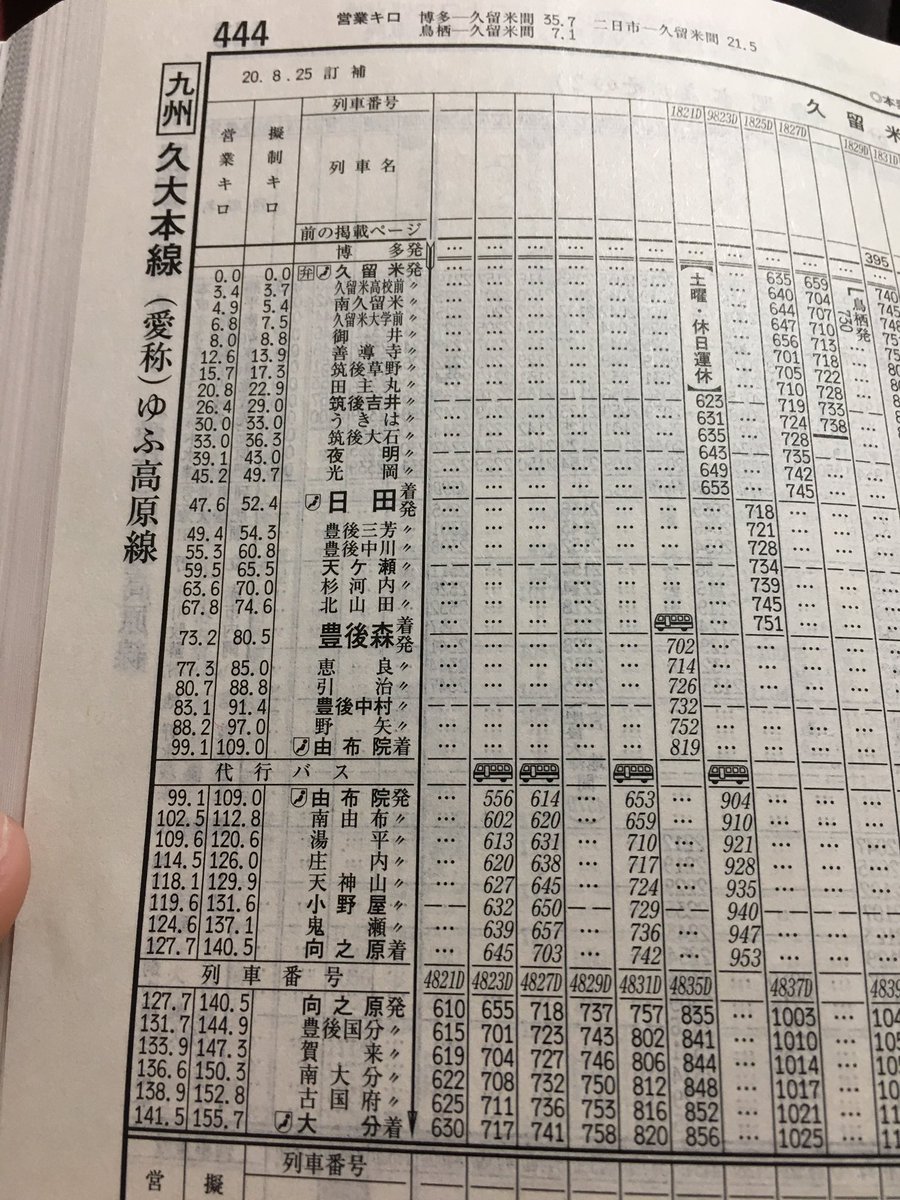 444
営業キロ 博多―久留米間 35.7 二日市―久留米間 21.5
鳥栖―久留米間 7.1
九州 久大本線 (愛称)ゆふ高原線
20.8.25 訂補
久留米
営業キロ 擬制キロ 列車番号 1821D 9823D 1825D 1827D 1829D 1831D
列車名
前の掲載ページ
博多発 … … … … … … … … … 395
0.0 0.0 弁 久留米発 … … … … … 【土曜・休日運休】 … 635 659 【鳥栖発 730 740
3.4 3.7 久留米高校前〃 … … … … … … 640 704 745
4.9 5.4 南久留米〃 … … … … … … 644 707
6.8 7.5 久留米大学前〃 … … … … … … 647 710
8.0 8.8 御井〃 … … … … … … 656 713
12.6 13.9 善導寺〃 … … … … … … 701 718
15.7 17.3 筑後草野〃 … … … … … … 705 722
20.8 22.9 田主丸〃 … … … … … … 710 728
26.4 29.0 筑後吉井〃 623 … 719 733
30.0 33.0 うきは〃 … … … … … 631 … 724 738
33.0 36.3 筑後大石〃 … … … … … 635 … 728
39.1 43.0 夜明〃 … … … … … 643 … 735
45.2 49.7 光岡〃 … … … … … 649 … 742
47.6 52.4 日田着 … … … … … 653 … 745
発 718
49.4 54.3 豊後三芳〃 … … … … … … 721
55.3 60.8 豊後中川〃 … … … … … … 728
59.5 65.5 天ケ瀬〃 734
63.6 70.0 杉河内〃 … … … … … … 739
67.8 74.6 北山田〃 … … … … … … 745
73.2 80.5 豊後森着 … … … … … 751
発 … … … … … 702
77.3 85.0 恵良〃 … … … … … 714
80.7 88.8 引治〃 … … … … … 726
83.1 91.4 豊後中村〃 732
88.2 97.0 野矢〃 … … … … … 752
99.1 109.0 由布院着 … … … … … 819
代行バス
99.1 109.0 由布院発 … 556 614 … 653 … 904
102.5 112.8 南由布〃 … 602 620 … 659 … 910
109.6 120.6 湯平〃 … 613 631 … 710 … 921
114.5 126.0 庄内〃 … 620 638 … 717 … 928
118.1 129.9 天神山〃 … 627 645 … 724 … 935
119.6 131.6 小野屋〃 632 650 729 940
124.6 137.1 鬼瀬〃 … 639 657 … 736 … 947
127.7 140.5 向之原着 … 645 703 … 742 … 953
列車番号 4821D 4823D 4827D 4829D 4831D 4835D 4837D
127.7 140.5 向之原発 610 655 718 737 757 835 … 1003
131.7 144.9 豊後国分〃 615 701 723 743 802 841 … 1010
133.9 147.3 賀来〃 619 704 727 746 806 844 … 1014
136.6 150.3 南大分〃 622 708 732 750 812 848 … 1017
138.9 152.8 古国府〃 625 711 736 753 816 852 … 1021
141.5 155.7 大分着 630 717 741 758 820 856 … 1025
営 擬 列車番号